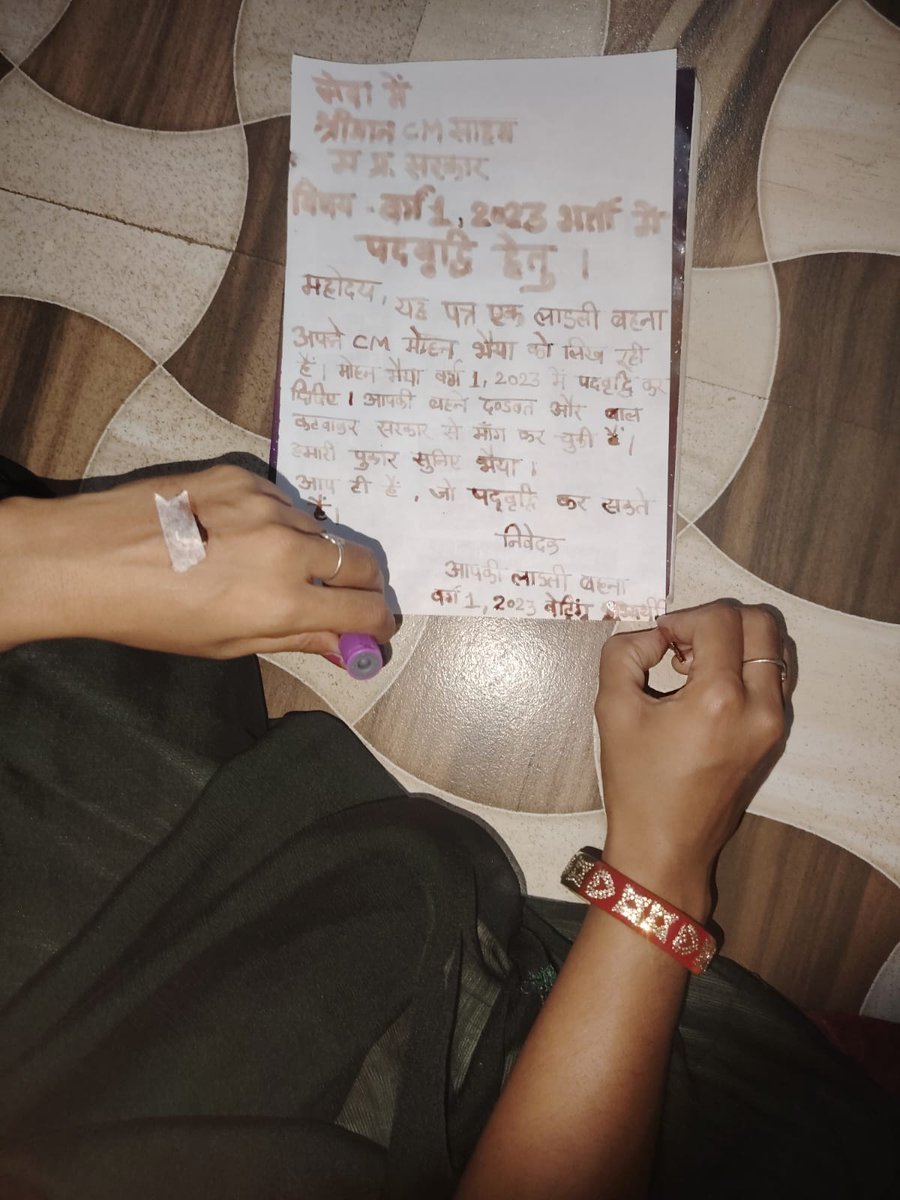 सेवा में
श्रीमान CM साहब
म प्र. सरकार
विषय - वर्ग 1, 2023 भर्ती में
पदवृद्धि हेतु ।
महोदय,
यह पत्र एक लाडली बहना
अपने CM मोहन भैया को लिख रही
हैं। मोहन भैया वर्ग 1, 2023 में पदवृद्धि कर
दिजिए। आपकी बहने दण्डवत और बाल
कटवाकर सरकार से माँग कर चुकी हैं।
हमारी पुकार सुनिए भैया।
आप ही हैं, जो पदवृद्धि कर सकते
हैं।
निवेदक
आपकी लाडली बहना
वर्ग 1, 2023 वेटिंग